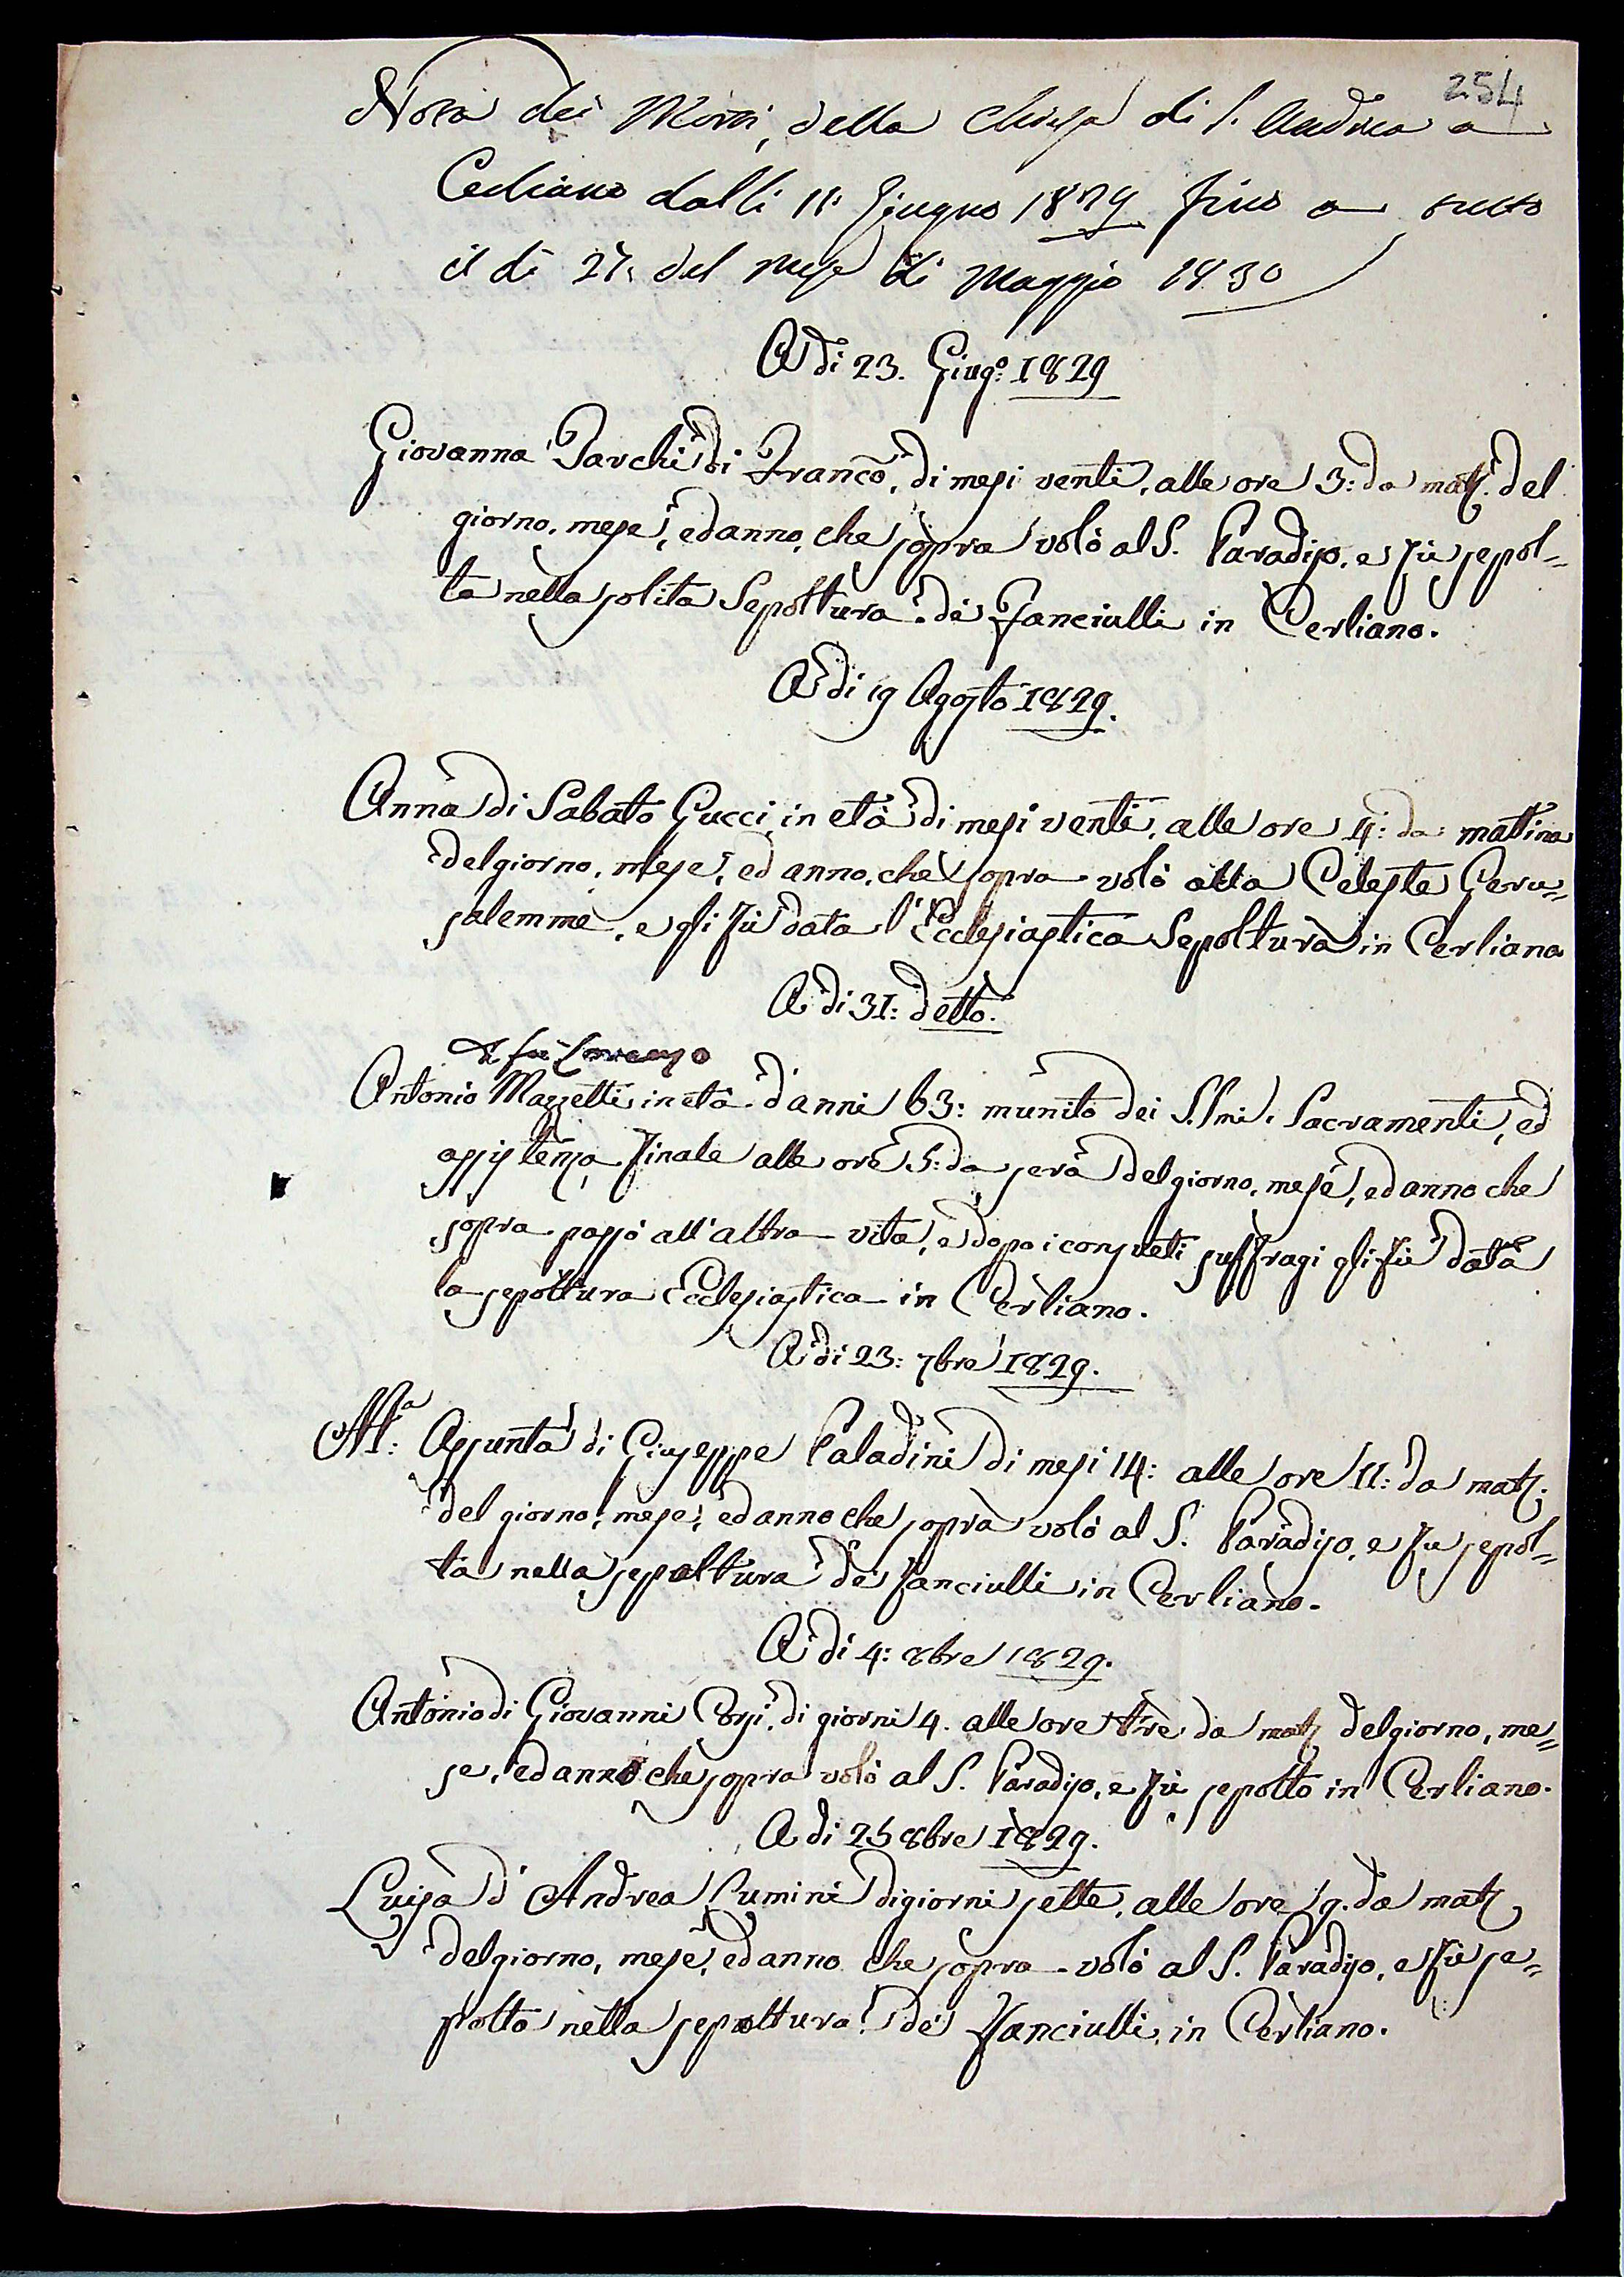 254
Nota dei Morti, della Chiesa di S. Andrea a
Cerliano dalli 11: Giugno 1829 fino a tutto
il di 27. del mese di Maggio 1830
A di 23. Giug.º 1829
Giovanna Parchi di Franco, di mesi venti, alle ore 3: da matt. del
giorno, mese, ed anno, che sopra volò al S. Paradiso, e fù sepol=
ta nella solita Sepoltura de Fanciulli in Cerliano.
A di 19 Agosto 1829.
Anna di Sabato Gucci in età di mesi venti, alle ore 4: da mattina
del giorno, mese, ed anno, che sopra volò alla Celeste Geru=
salemme, e gli fù data l'Ecclesiastica Sepoltura in Cerliano
A di 31: detto.
di fu Lorenzo
Antonio Mazzetti in età d'anni 63: munito dei S.Smi. Sacramenti, ed
assistenza finale alle ore 5: da sera del giorno, mese, ed anno che
sopra passò all'altra vita, e dopo i consueti suffragi gli fù data
la sepoltura Ecclesiastica in Cerliano.
A di 23: 7bre 1829.
M.ª Assunta di Giuseppe Paladini di mesi 14: alle ore 11: da matt.
del giorno, mese, ed anno che sopra volò al S. Paradiso, e fu sepol=
ta nella sepoltura de fanciulli in Cerliano.
A di 4: 8bre 1829.
Antonio di Giovanni Corsi, di giorni 4. alle ore tre da matt. del giorno, me=
se, ed anno che sopra volò al S. Paradiso, e fù sepolto in Cerliano.
A di 25 8bre 1829.
Luisa d'Andrea Lumini di giorni sette, alle ore 9. da matt.
del giorno, mese, ed anno che sopra volò al S. Paradiso, e fù se=
polto nella sepoltura de' Fanciulli, in Cerliano.